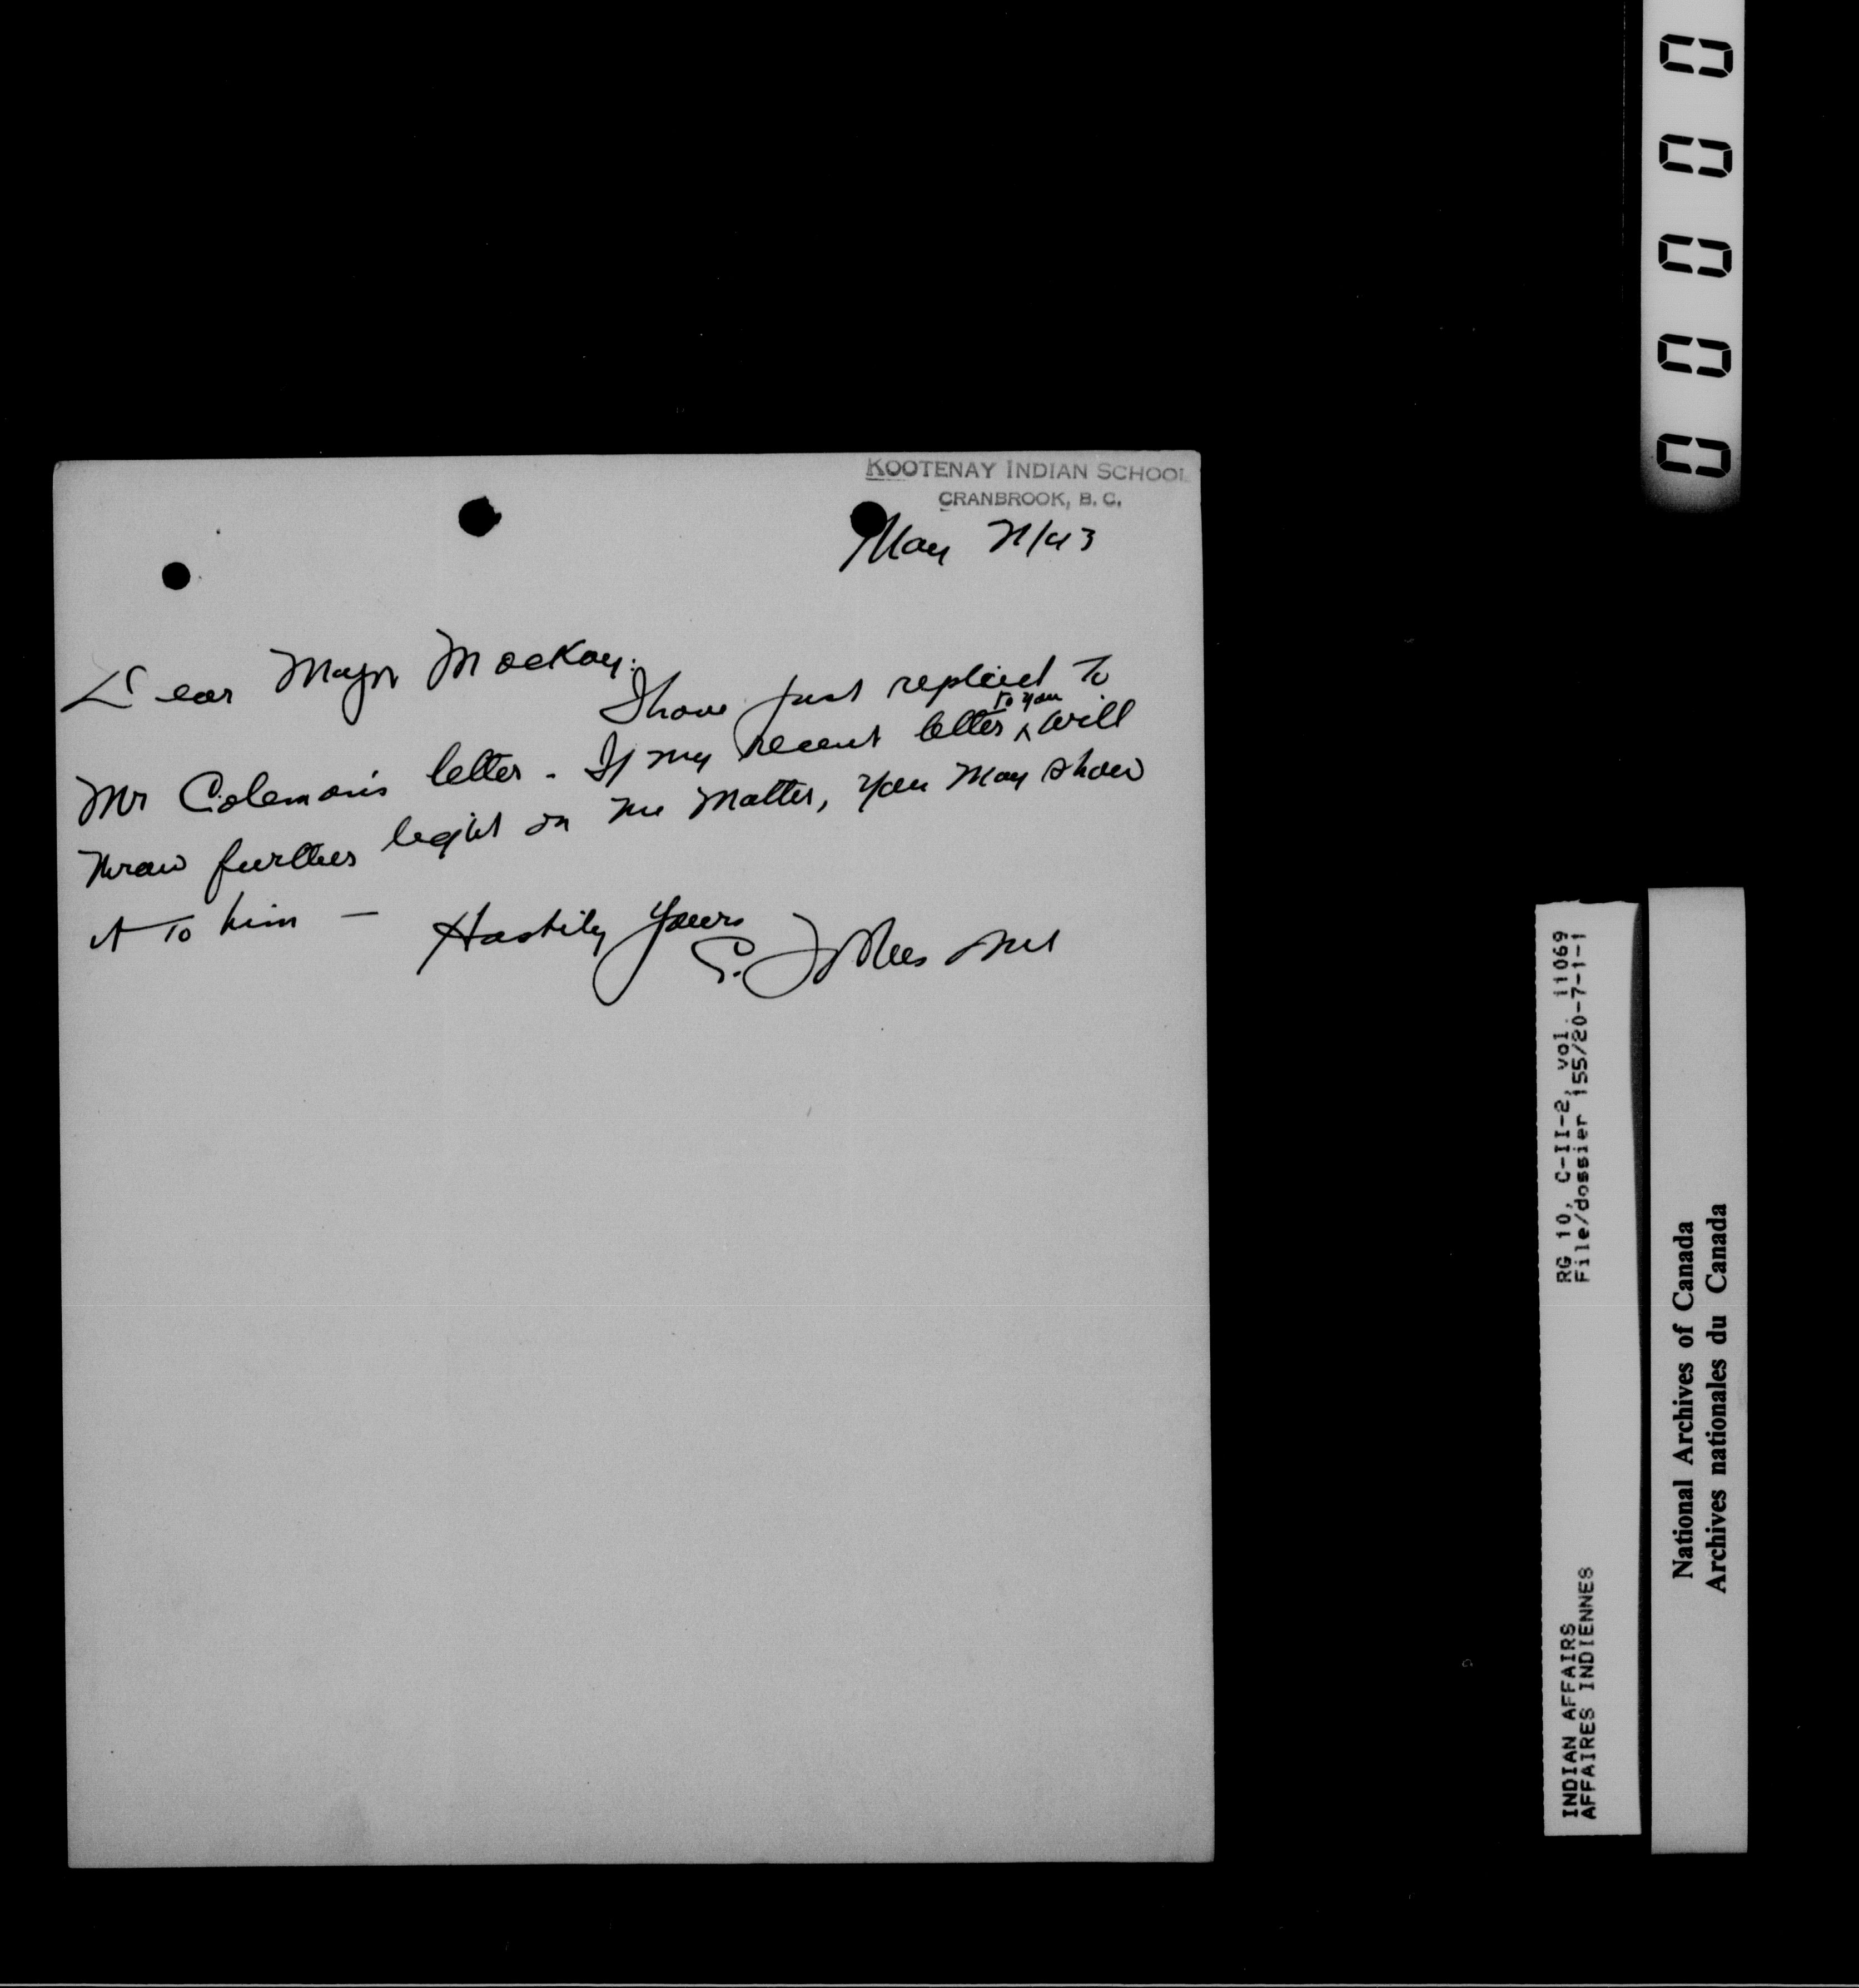 KOOTENAY INDIAN SCHOOL
CRANBROOK, B. C.
May 21/43
Dear Major MacKay:
I have just replied to
Mr Coleman's letter - If my recent letter ^to you will
throw further light on the matter, you may show
it to him —
Hastily yours
G.
RG 10, C-II-2, vol. 11069
File/dossier 155/20-7-1-1
INDIAN AFFAIRS
AFFAIRES INDIENNES
National Archives of Canada
Archives nationales du Canada
0 0 0 0 0